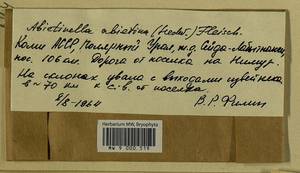 Abietinella abietina (Hedw.) Fleisch.
Коми АССР, Полярный Урал, ж.д. Сейда-Лабытнанги,
пос. 106 км. Дорога от поселка на
На склонах увала с выходами известняка
в ~ 70 км к с.-в. от поселка.
8/8-1964 В.Р. Филин
Herbarium MW, Bryophyta
MW 9 000 519